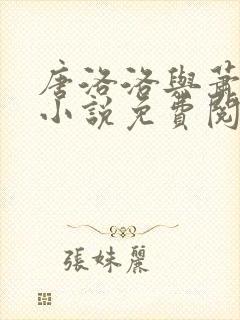 唐洛洛與蕭
小說免費閱
張妹麗